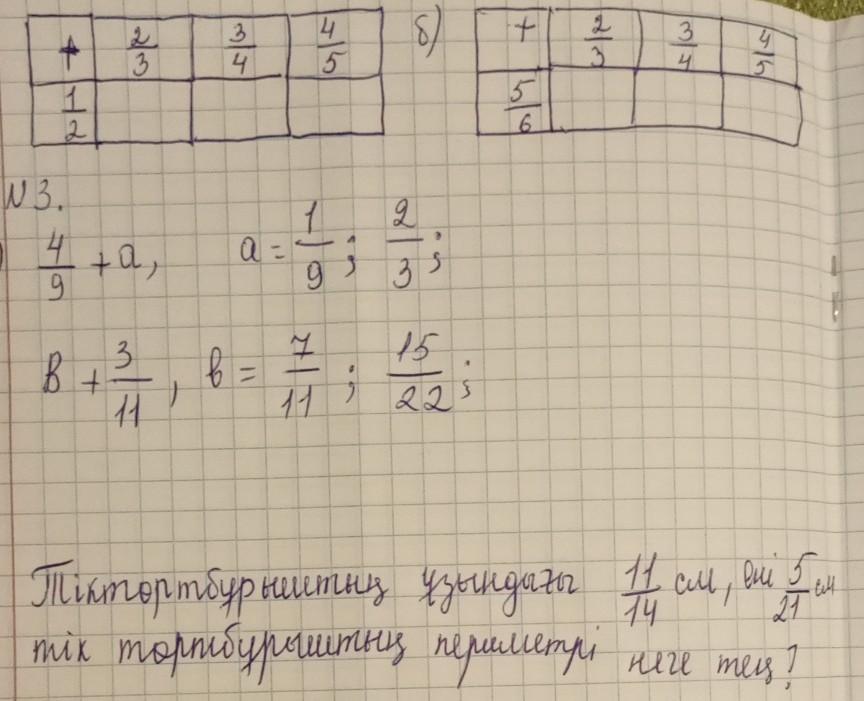 + 2/3 3/4 4/5
1/2
б) + 2/3 3/4 4/5
5/6
N3.
4/9 + a, a = 1/9; 2/3;
B + 3/11, b = 7/11; 15/22;
Тіктөртбұрыштың ұзындығы 11/14 см, ені 5/21 см
тік төртбұрыштың периметрі неге тең?